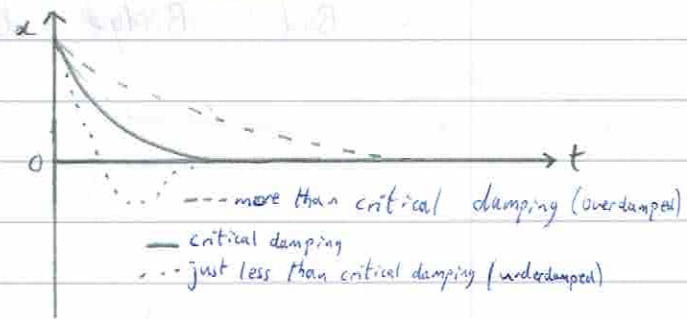 x
0
t
--- more than critical damping (overdamped)
— critical damping
... just less than critical damping (underdamped)